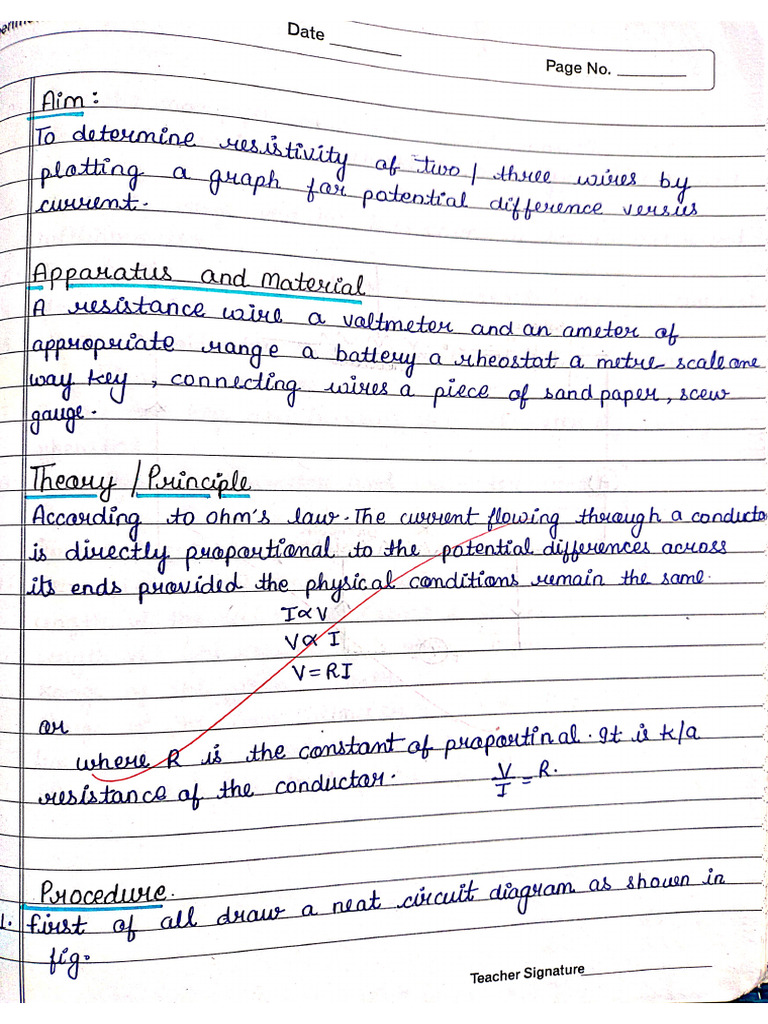 Date
Page No.
Aim:
To determine resistivity of two/three wires by
plotting a graph for potential difference versus
current.
Apparatus and Material
A resistance wire a voltmeter and an ameter of
appropriate range a battery a rheostat a metre scale one
way key, connecting wires a piece of sand paper, scew
gauge.
Theory/Principle
According to ohm's law. The current flowing through a conducto
is directly proportional to the potential differences across
its ends provided the physical conditions remain the same.
I∝V
V∝I
V=RI
or
where R is the constant of proportinal. It is k/a
resistance of the conductor. V/I = R.
Procedure.
1. first of all draw a neat circuit diagram as shown in
fig.
Teacher Signature